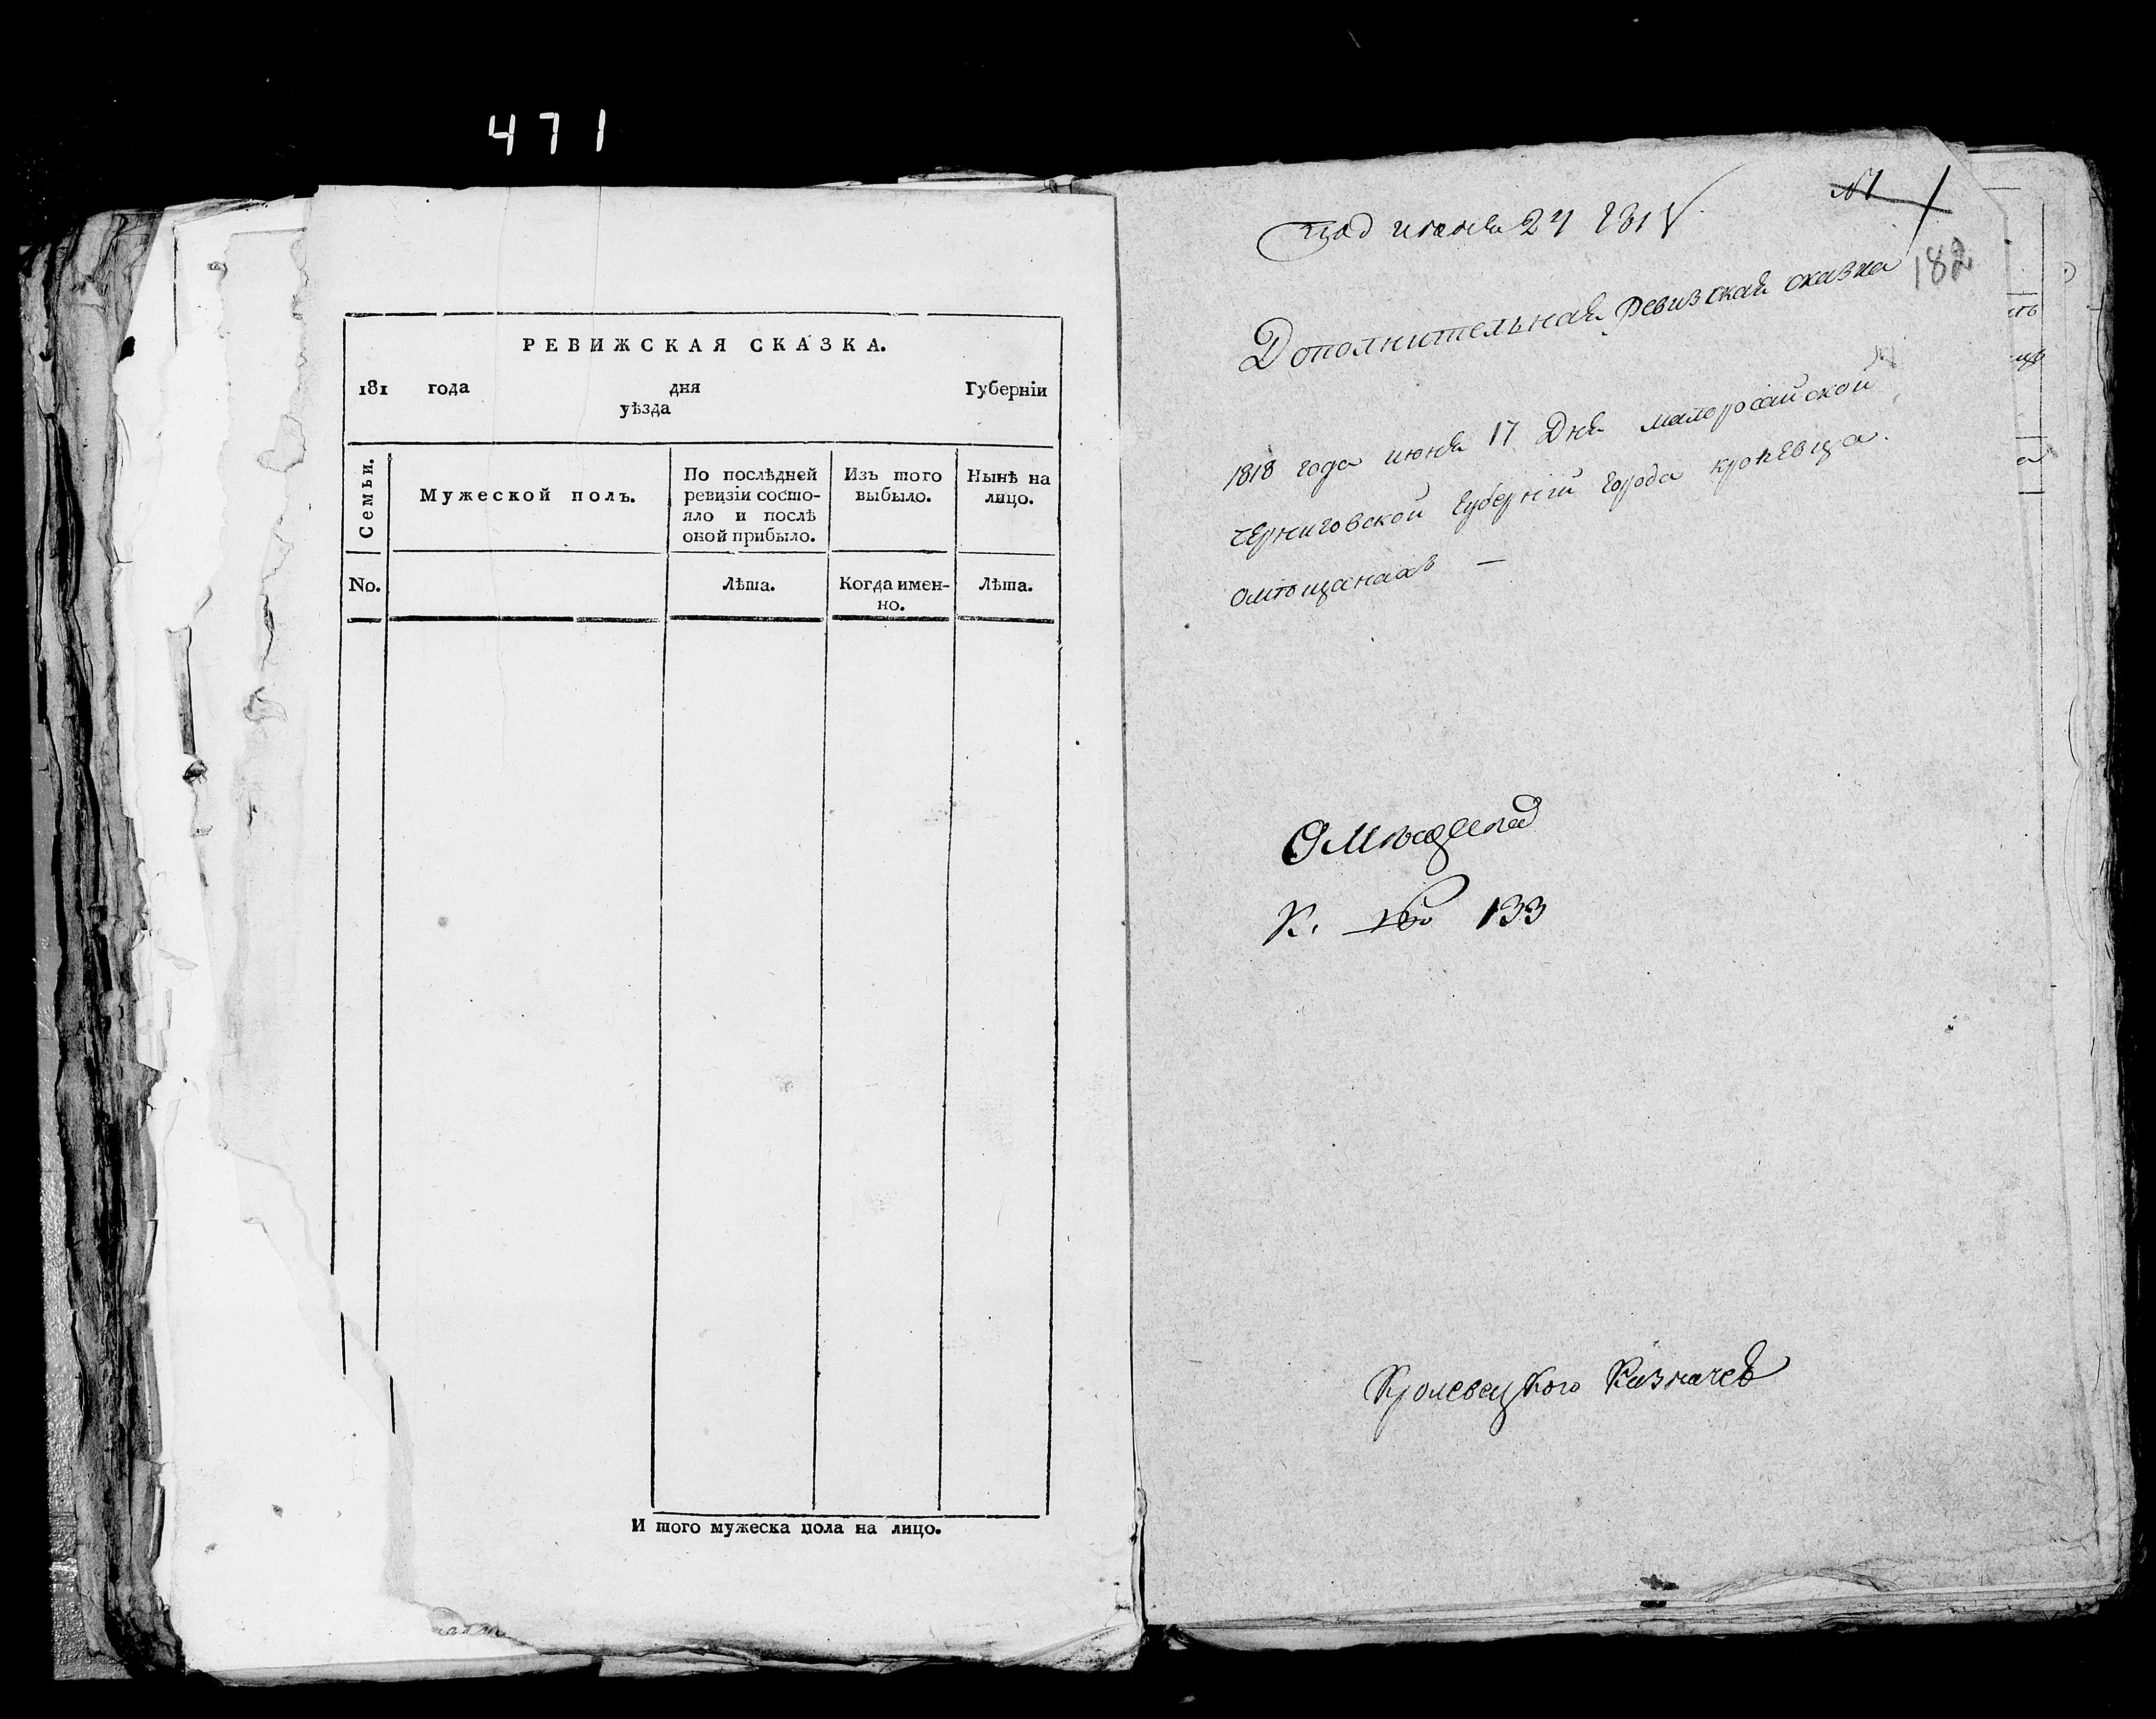 471
РЕВИЖСКАЯ СКАЗКА.
181 года дня Губерніи
уѣзда
Семьи.
Мужеской полъ.
По послѣдней
ревизіи состо-
яло и послѣ
оной прибыло.
Изъ того
выбыло.
Нынѣ на
лицо.
No.
Лѣта.
Когда имен-
но.
Лѣта.
И того мужеска пола на лицо.
№1
июня 24
182
Дополнительная ревизская сказка
1818 года июня 17 Дня малоросийской
черниговской губернїи города кролевца
омѣщанахъ —
К. 133
Кролевецкого Казначея